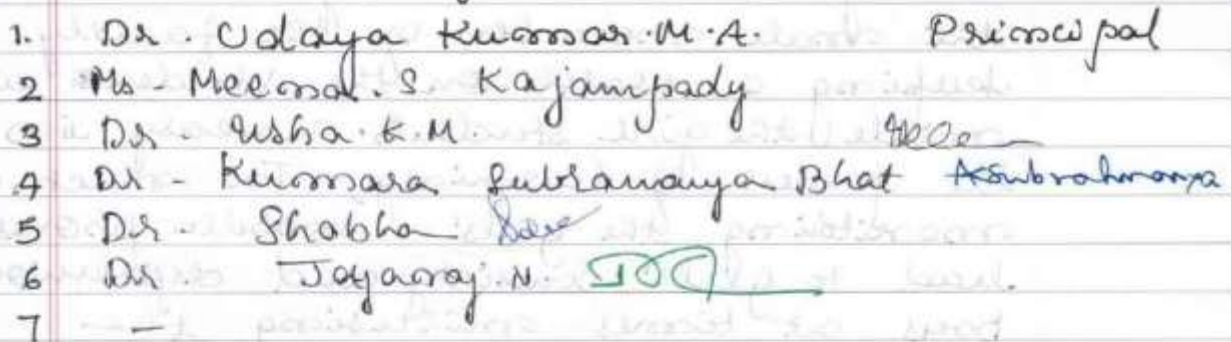 1. Dr. Udaya Kumar.M.A. Principal
2 Ms - Meena.S Kajampady
3 Dr. Usha.K.M.
4 Dr - Kumara Subramanya Bhat KSubrahmanya
5 Dr. Shobha
6 Dr. Jayaraj.N
7 -